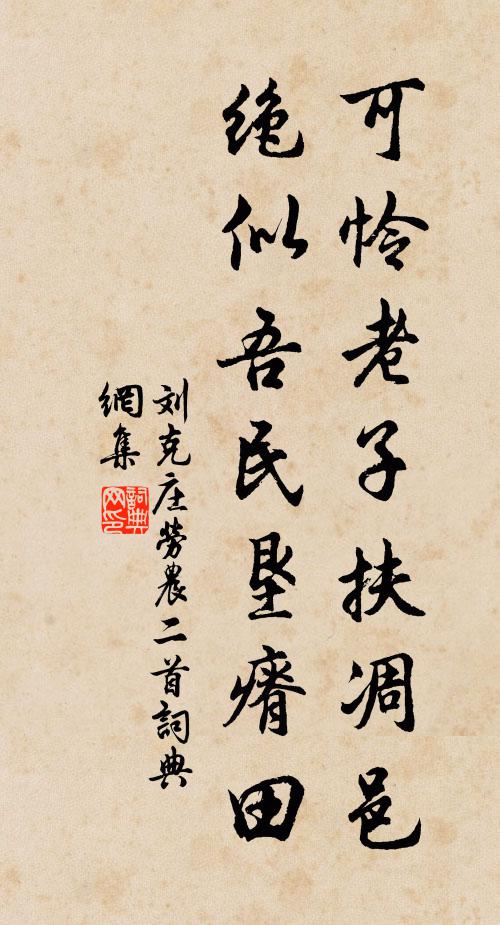 可怜老子扶凋邑
绝似吾民垦瘠田
刘克庄劳農二首詞典
網集
詞典网印